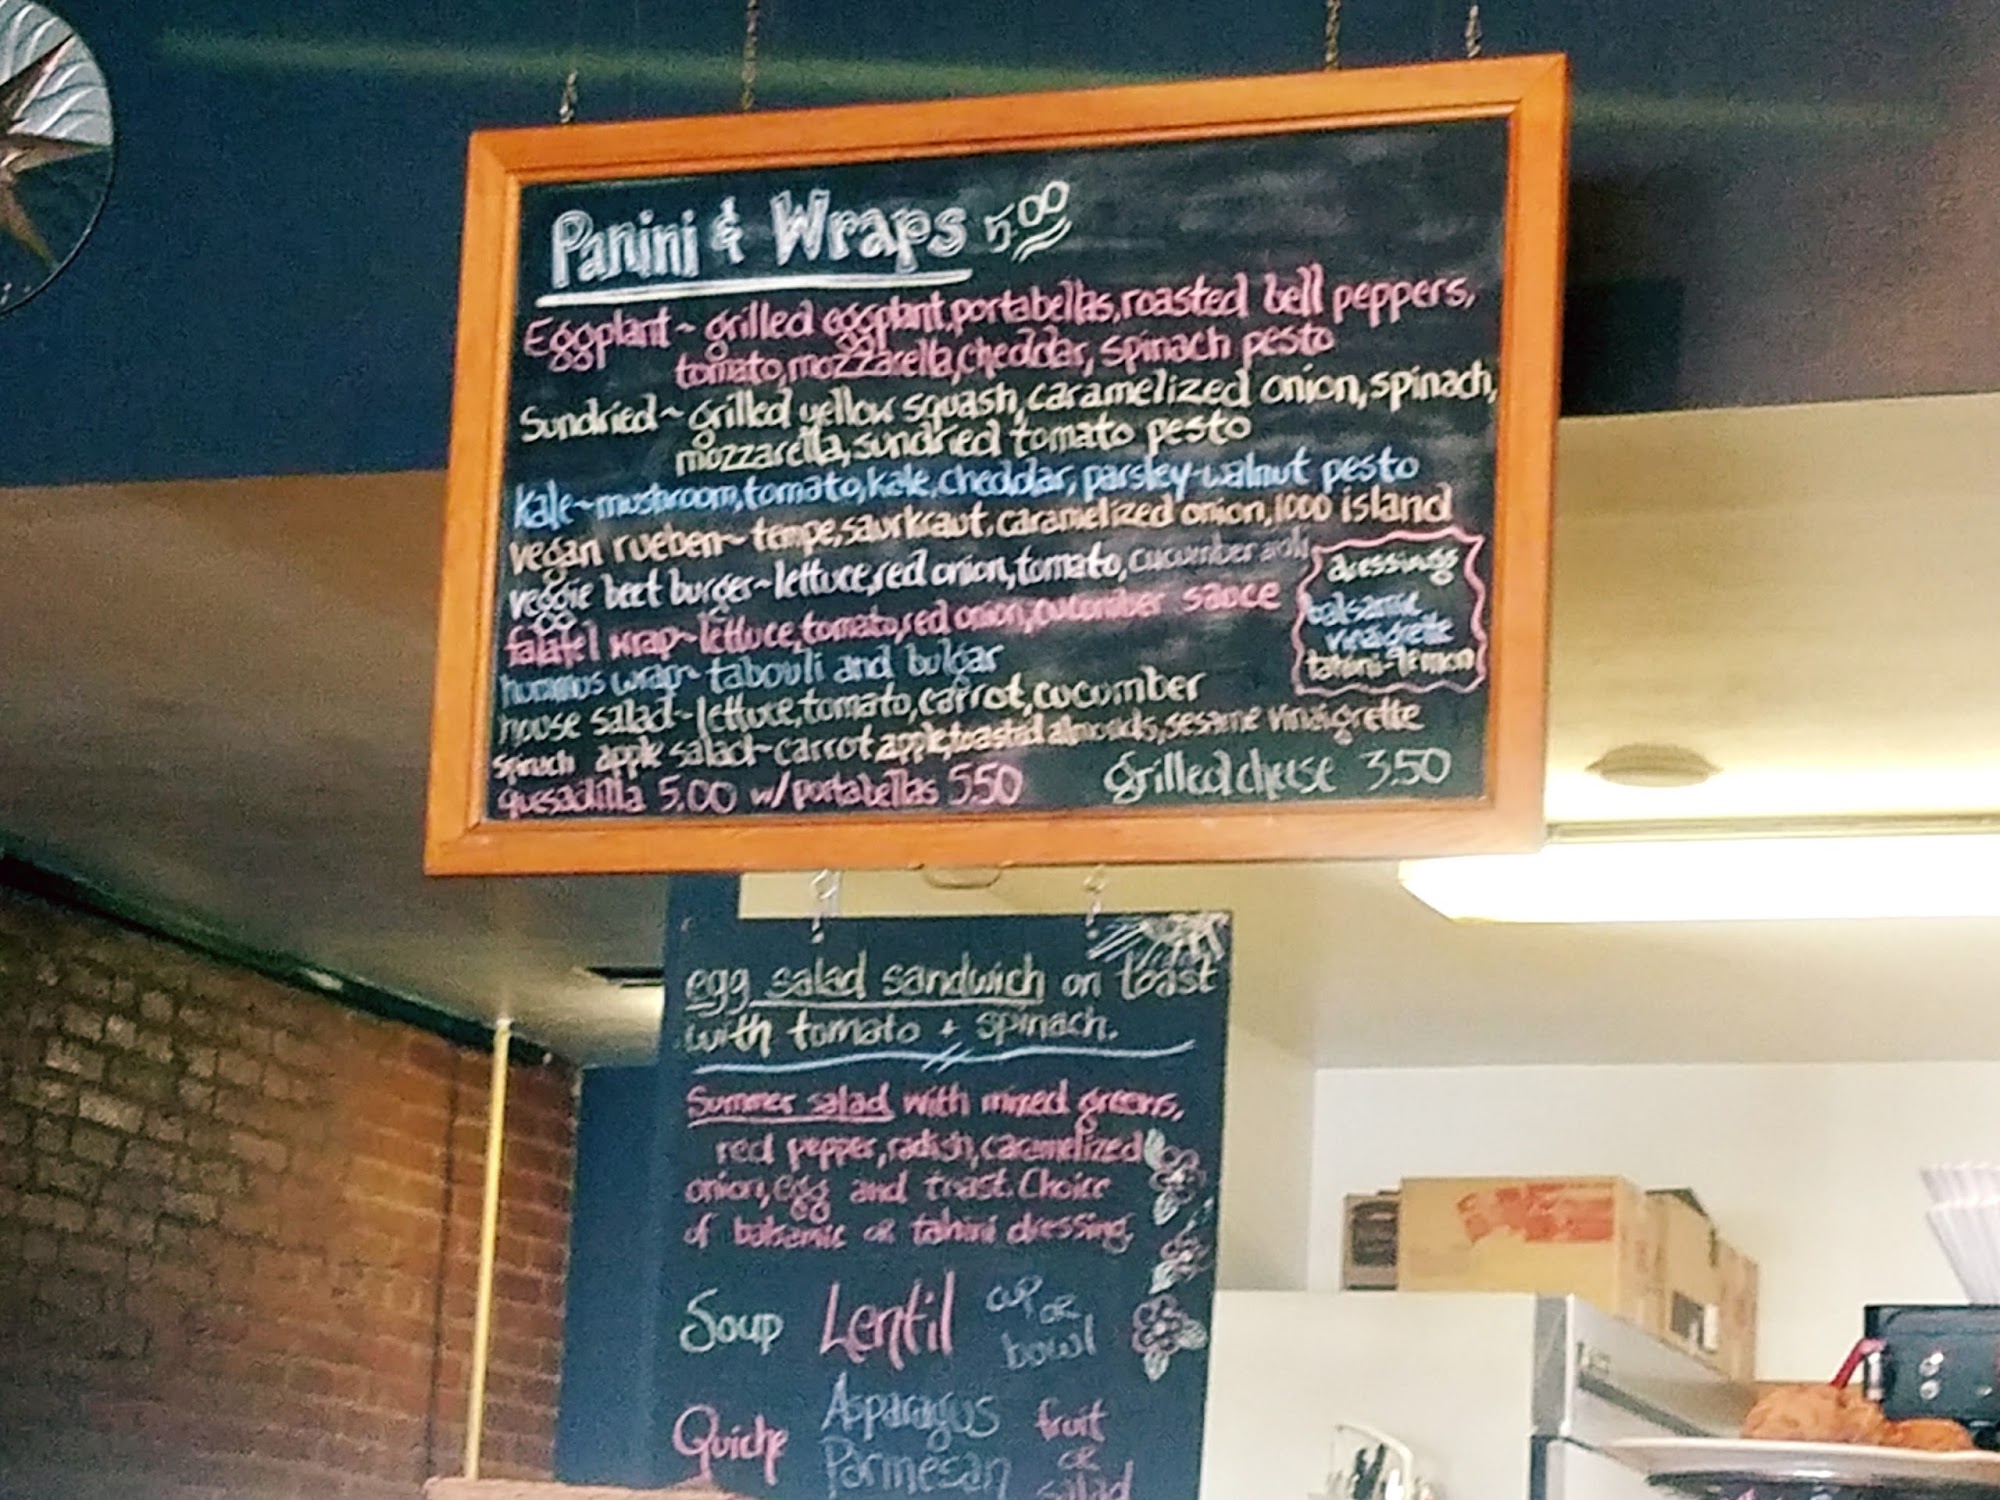 Panini & Wraps 5.00
Eggplant ~ grilled eggplant, portabellas, roasted bell peppers,
tomato, mozzarella, cheddar, spinach pesto
Sundried ~ grilled yellow squash, caramelized onion, spinach,
mozzarella, sundried tomato pesto
Kale ~ mushroom, tomato, kale, cheddar, parsley-walnut pesto
vegan rueben ~ tempe, saurkraut, caramelized onion, 1000 island
veggie beet burger ~ lettuce, red onion, tomato, cucumber aioli
falafel wrap ~ lettuce, tomato, red onion, cucumber sauce
hommus wrap ~ tabouli and bulgar
house salad ~ lettuce, tomato, carrot, cucumber
spinach apple salad ~ carrot, apple, toasted almonds, sesame vinaigrette
quesadilla 5.00 w/ portabellas 5.50
grilled cheese 3.50
dressings
balsamic
vinaigrette
tahini-lemon
egg salad sandwich on toast
with tomato + spinach.
Summer salad with mixed greens,
red pepper, radish, caramelized
onion, egg and toast. Choice
of balsamic or tahini dressing.
Soup Lentil cup or
bowl
Quiche Asparagus
Parmesan
fruit
or
salad